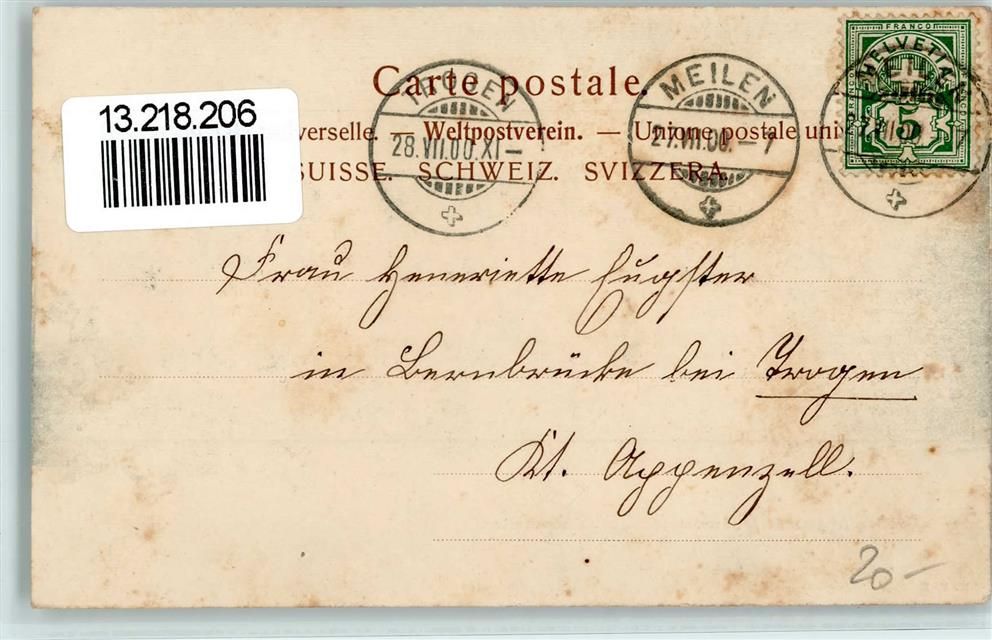 Carte postale.
13.218.206
verselle. — Weltpostverein. — Unione postale uni
SUISSE. SCHWEIZ. SVIZZERA.
TROGEN
28.VII.00.XI—
MEILEN
27.VII.00.—7
FRANCO
HELVETIA
5
Frau Heneriette Eugster
in Bernbrücke bei Trogen
Kt. Appenzell.
20—